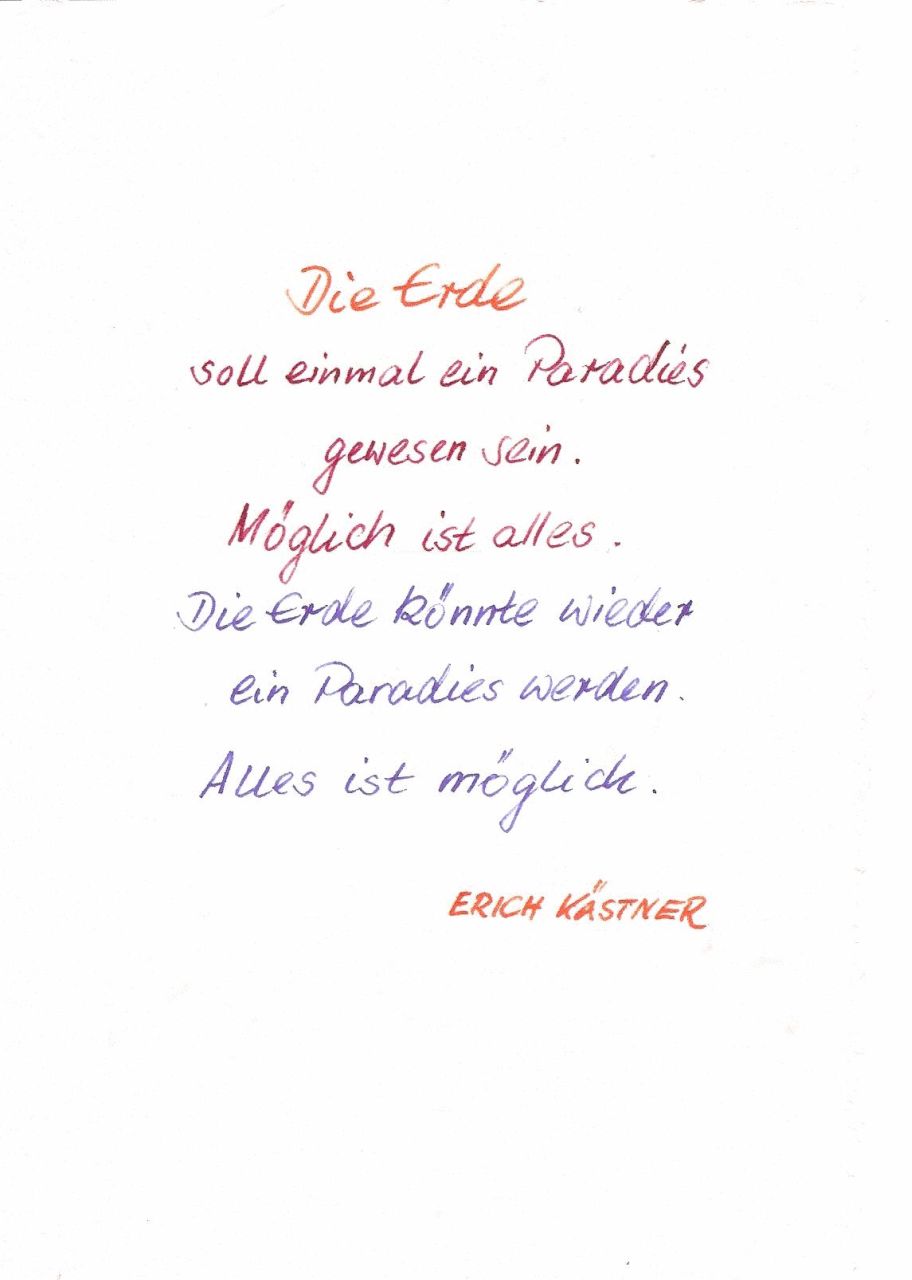 Die Erde
soll einmal ein Paradies
gewesen sein.
Möglich ist alles.
Die Erde könnte wieder
ein Paradies werden.
Alles ist möglich.
ERICH KÄSTNER